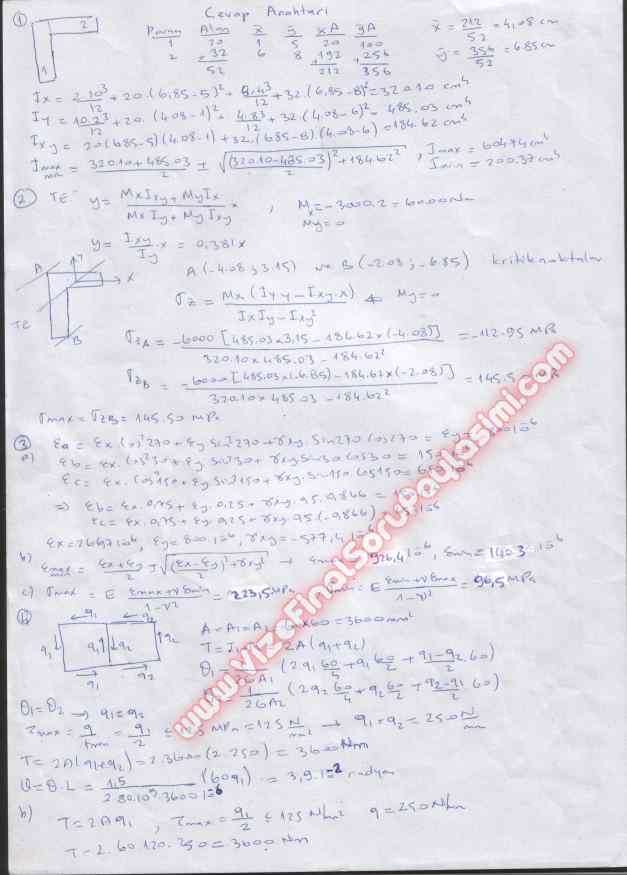 Cevap Anahtarı
① 1 2
Parça Alan x̄ ȳ xA yA
1 20 1 5 20 100
2 +32 6 8 +192 +256
52 212 356
x̄ = 212/52 = 4,08 cm
ȳ = 356/52 = 6.85 cm
Ix = 2.10³/12 + 20.(6,85-5)² + 8.4³/12 + 32.(6,85-8)² = 320.10 cm⁴
Iy = 10.2³/12 + 20.(4.08-1)² + 4.8³/12 + 32.(4,08-6)² = 485.03 cm⁴
Ixy = 20(6.85-5)(4.08-1) + 32.(6.85-8)(4.08-6) = 184.62 cm⁴
Imax/min = 320.10+485.03/2 ± √((320.10-485.03/2)² + 184.62²) , Imax = 604.74 cm⁴
Imin = 200.37 cm⁴
② TE y = MxIxy + MyIx / MxIy + MyIxy . x , Mx = -3000.2 = 6000 Nm
My = 0
y = Ixy/Iy . x = 0,381x
A B x y TE
A(-4.08; 3.15) ve B(-2.08; -6.85) kritik noktalar
σz = Mx(Iy y - Ixy.x) / IxIy - Ixy² My = 0
σzA = -6000[485.03x3,15 - 184.62x(-4.08)] / 320.10x485.03 - 184.62² = -112.95 MPa
σzB = -6000[485.03x(-6.85) - 184.62x(-2.08)] / 320.10x485.03 - 184.62² = 145.50 MPa
σmax = σzB = 145.50 MPa
③
a) εa = εx Cos²270 + εy Sin²270 + γxy. Sin270 Cos270 = εy =
εb = εx. Cos²30 + εy Sin²30 + γxy Sin30 Cos30 =
εc = εx. Cos²150 + εy Sin²150 + γxy. Sin150 Cos150 =
⇒ εb = εx. 0,75 + εy. 0,25 + γxy. 0,5. 0,866 =
εc = εx. 0,75 + εy 0,25 + γxy. 0,5 (-0,866) =
εx = 266,7 10⁻⁶, εy = 800.10⁻⁶, γxy = -577,4 10⁻⁶
b) εmax/min = εx+εy/2 ± √((εx-εy)² + γxy²)/2 → 926,4 10⁻⁶, εmin = 140.3 10⁻⁶
c) σmax = E εmax+νεmin/1-ν² = 223,5 MPa E εmin+νεmax/1-ν² = 96,5 MPa
④
q₁ q₂ q₁ q₁ q₂ q₂ q₁ q₂
A = A₁ = A₂ = x60 = 3600 mm²
T = 2A(q₁+q₂)
θ₁ = 1/2GA₁ (2q₁ 60/4 + q₁ 60/2 + q₁-q₂/ 60)
1/2GA₂ (2q₂ 60/4 + q₂ 60/2 + q₂-q₁/2 60)
θ₁ = θ₂ → q₁ = q₂
τmax = q/tmin = q₁/2 ≤ MPa = 125 N/mm² → q₁ = q₂ = 250 N/mm
T = 2A(q₁+q₂) = 2.3600(2.250) = 3600 Nm
θ = θ.L = 1,5/2.80.10⁹.3600 10⁻⁶ (60q₁) = 3,9.10⁻² radyan
b) T = 2Aq₁ , τmax = q₁/2 ≤ 125 N/mm² q = 250 N/mm
T = 2.60.120.250 = 3600 Nm
www.VizeFinalSoruPaylasimi.com